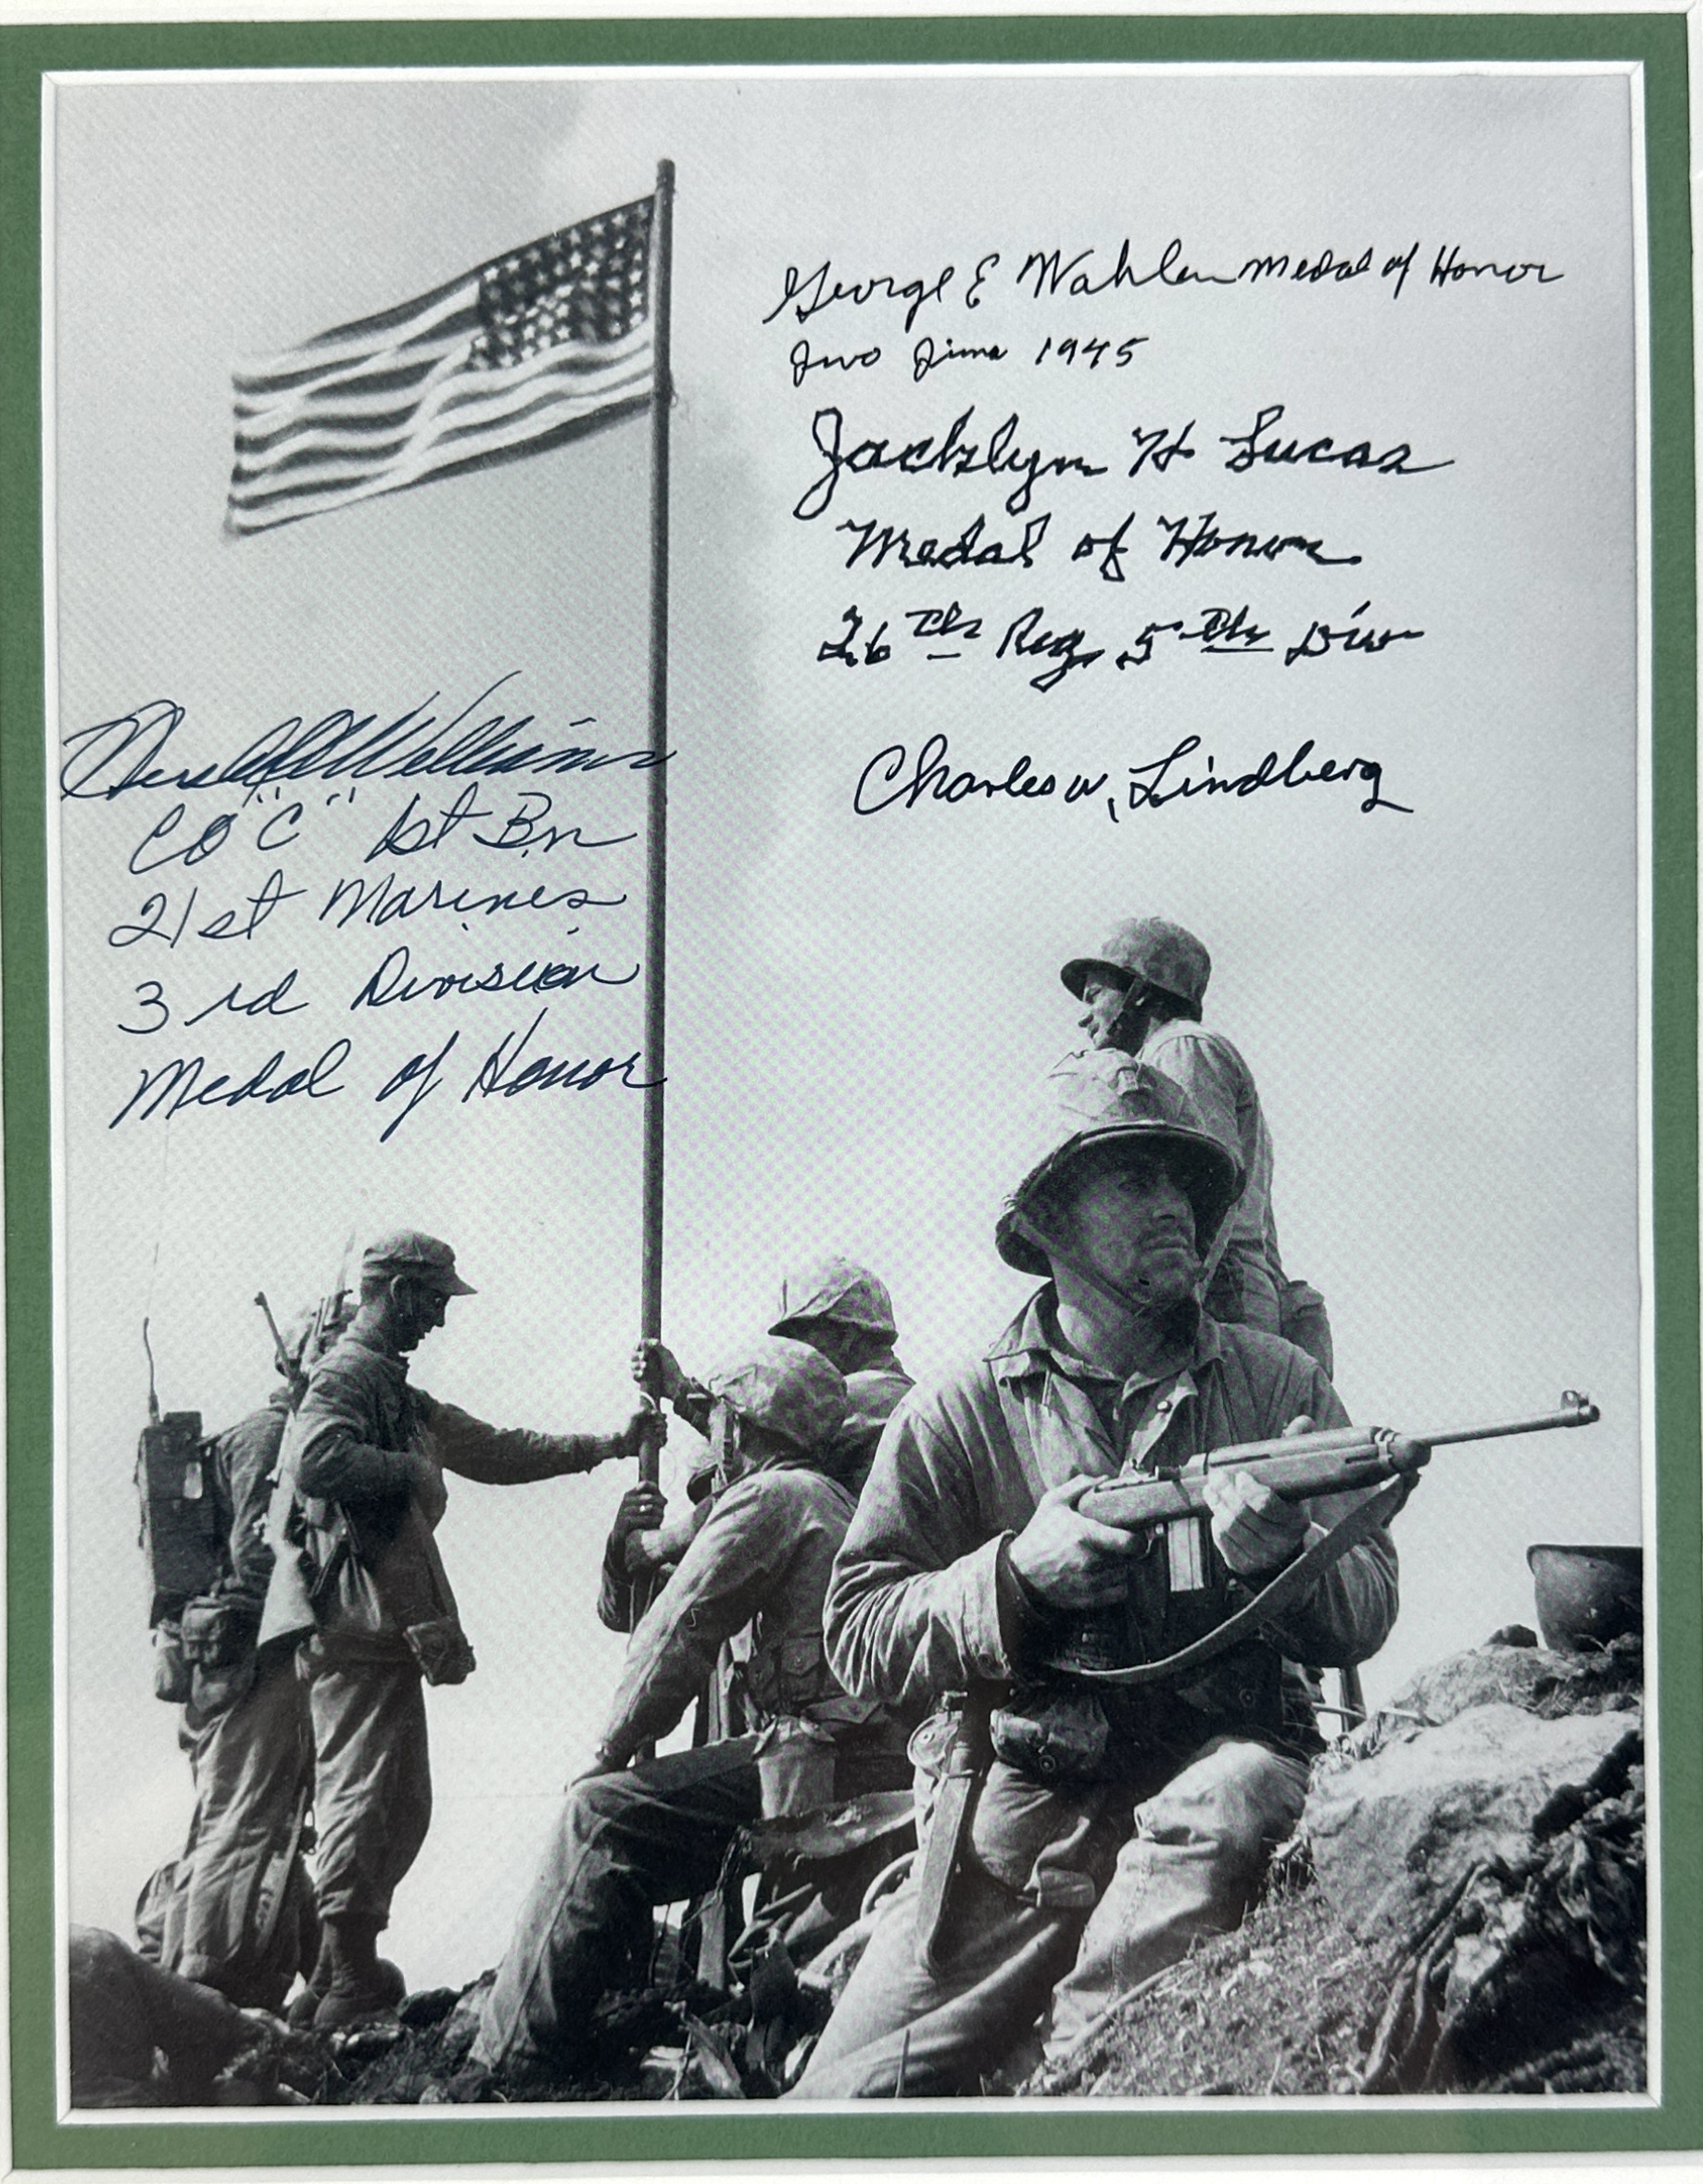 George E Wahlen Medal of Honor
Iwo Jima 1945
Jacklyn H Lucas
Medal of Honor
26th Reg. 5th Div
Charles W. Lindberg
Hershel W Williams
Co "C" 1st Bn
21st Marines
3rd Division
Medal of Honor